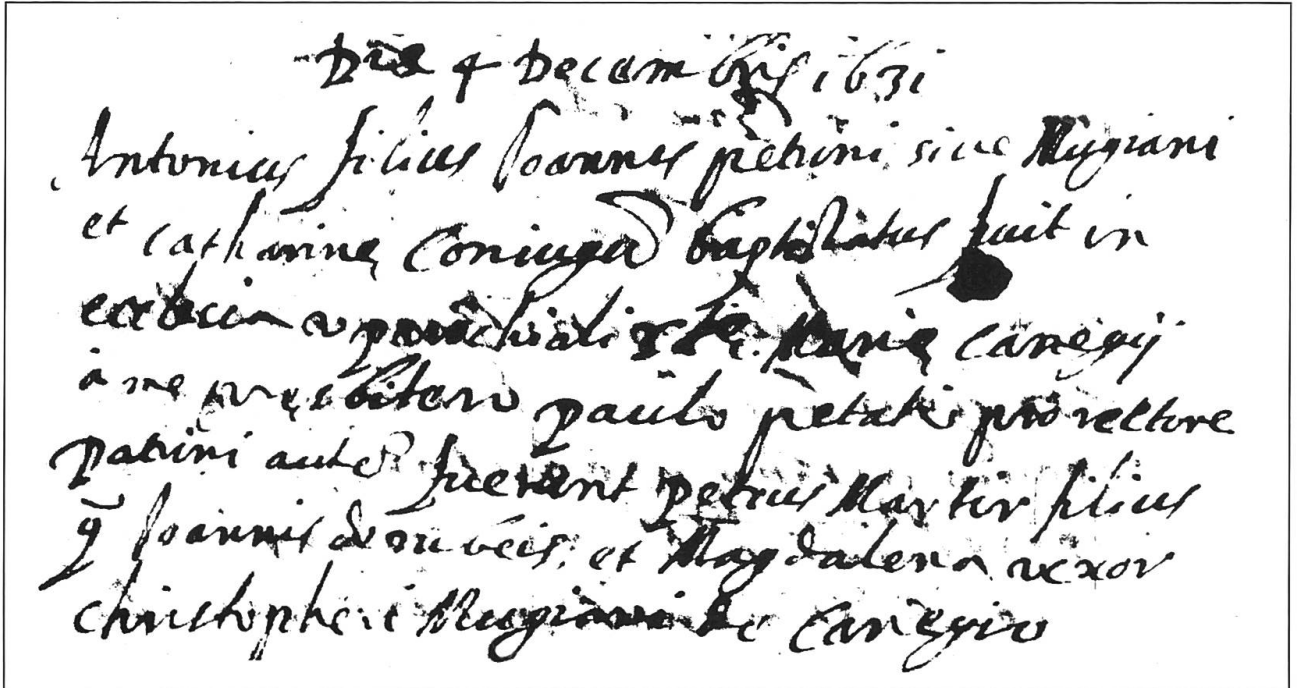 Die 4 Decembris 1631
Antonius filius Joannis petrini sive Mugiani
et catharinę Coniugũ baptizatus fuit in
ecclesia parochiali Stę. Marię Canegij
à me pręsbitero paulo petate prorectore
patrini autẽ fuerunt petrus Martir filius
q̃ Joannis de rubeis, et Magdalena uxor
christopheri Mugiani de Canegio